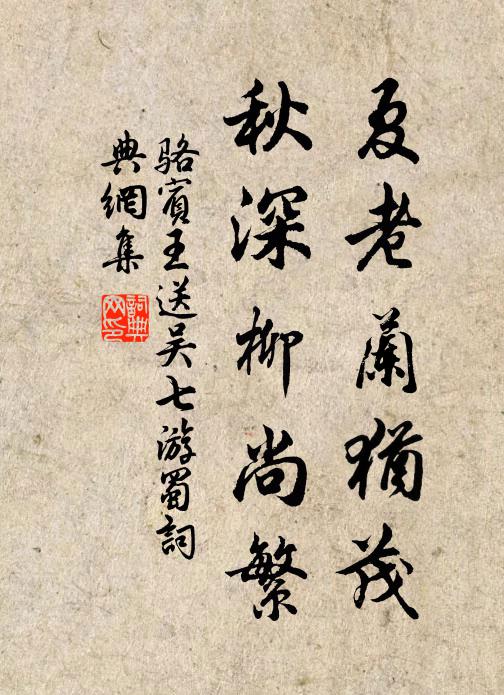 夏老蘭猶茂
秋深柳尚繁
駱賓王送吴七游蜀詞
典網集
詞典
网印